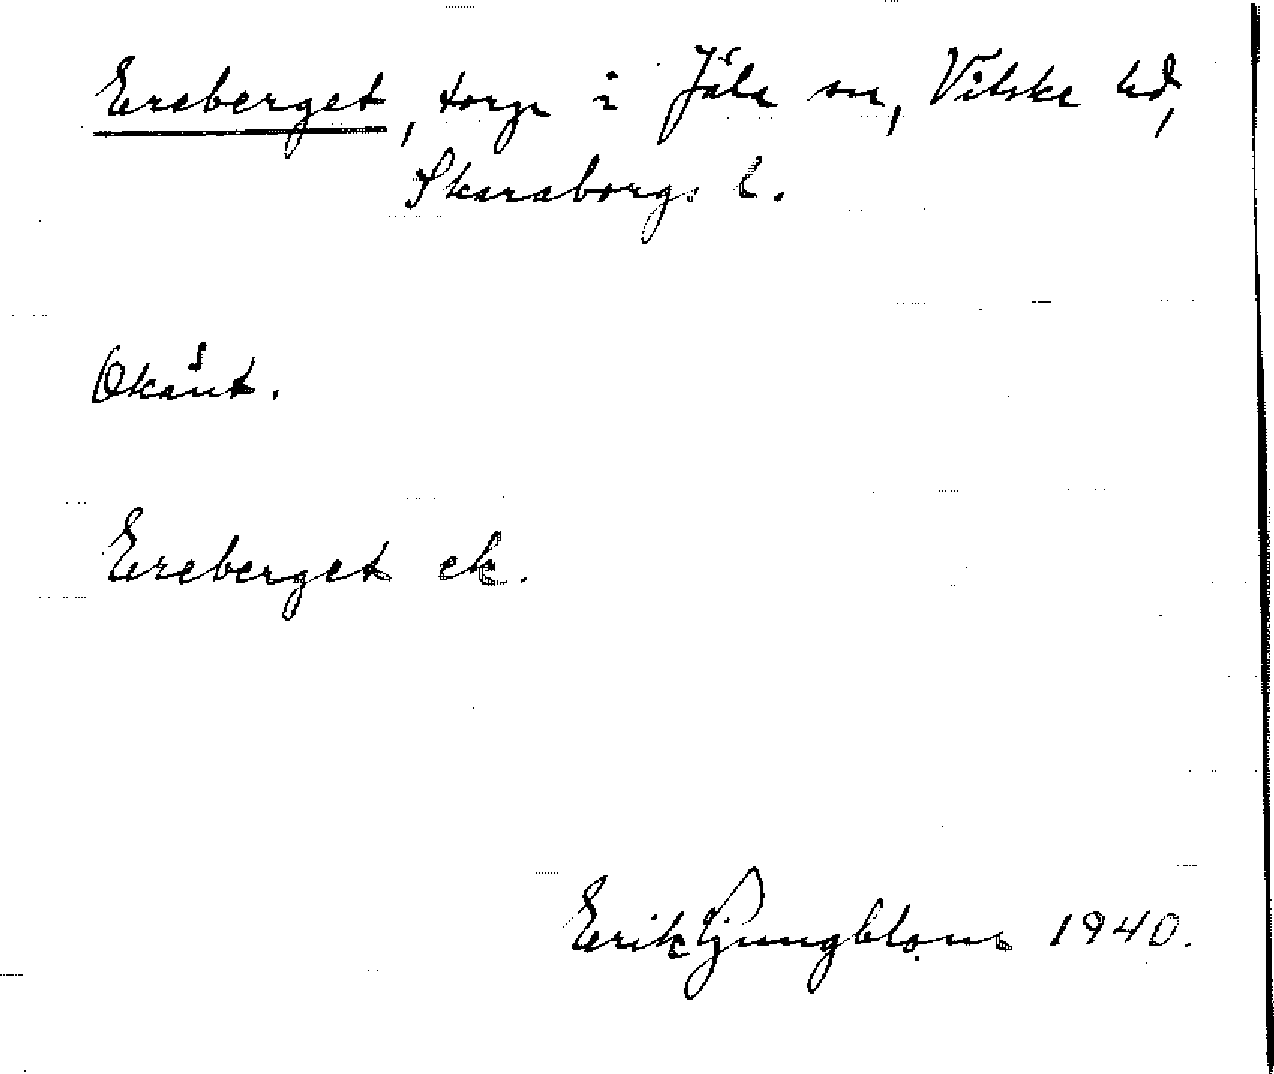 Ereberget, torp i Jäla sn, Vilske hd,
Skaraborgs l.
Okänt.
Ereberget ek.
Erik Ljungblom 1940.